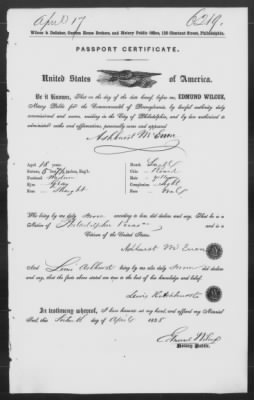 April 17
6219.
Wilcox & Dollaker, Custom House Brokers, and Notary Public Office, 138 Chestnut Street, Philadelphia.
PASSPORT CERTIFICATE.
United States of America.
Be it Known, That on the day of the date hereof, before me, EDMUND WILCOX,
Notary Public for the Commonwealth of Pennsylvania, by lawful authority duly
commissioned and sworn, residing in the City of Philadelphia, and by law authorized to
administer oaths and affirmations, personally came and appeared
Ashhurst McEuen
Age, 18 years
Stature, 5 feet inches, Engl.
Forehead,
Eyes, Gray
Nose, Straight
Mouth,
Chin, Round
Hair,
Complexion, Light
Face, Oval
Who being by me duly sworn did declare and say, That he is a
Native of Philadelphia and a
Citizen of the United States.
Ashhurst McEuen
And Lewis Ashhurst who being by me duly sworn did declare
and say, that the facts above stated are true to the best of his knowledge and belief.
Lewis R Ashhurst
In testimony whereof, I have hereunto set my hand, and affixed my Notarial
Seal, this day of April 1855
Edmund Wilcox
Notary Public.